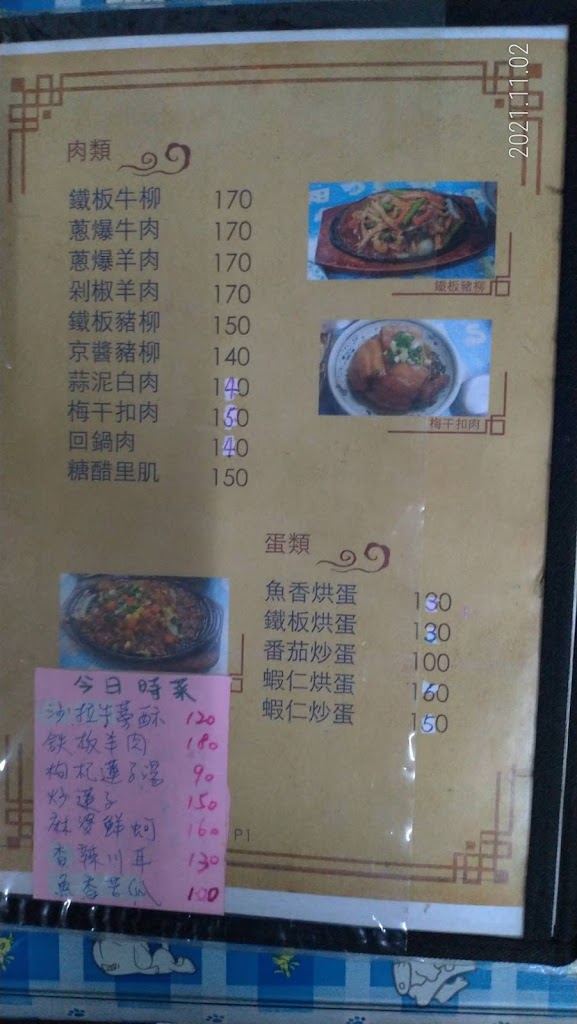 2021.11.02
肉類
鐵板牛柳 170
蔥爆牛肉 170
蔥爆羊肉 170
剁椒羊肉 170
鐵板豬柳 150
京醬豬柳 140
蒜泥白肉 140
梅干扣肉 150
回鍋肉 140
糖醋里肌 150
鐵板豬柳
梅干扣肉
蛋類
魚香烘蛋 130
鐵板烘蛋 130
番茄炒蛋 100
蝦仁烘蛋 160
蝦仁炒蛋 150
今日時菜
沙拉牛蒡酥 120
鉄板羊肉 180
枸杞蓮子湯 90
炒蓮子 150
麻婆鮮蚵 160
香辣川耳 130
魚香苦瓜 100
P1